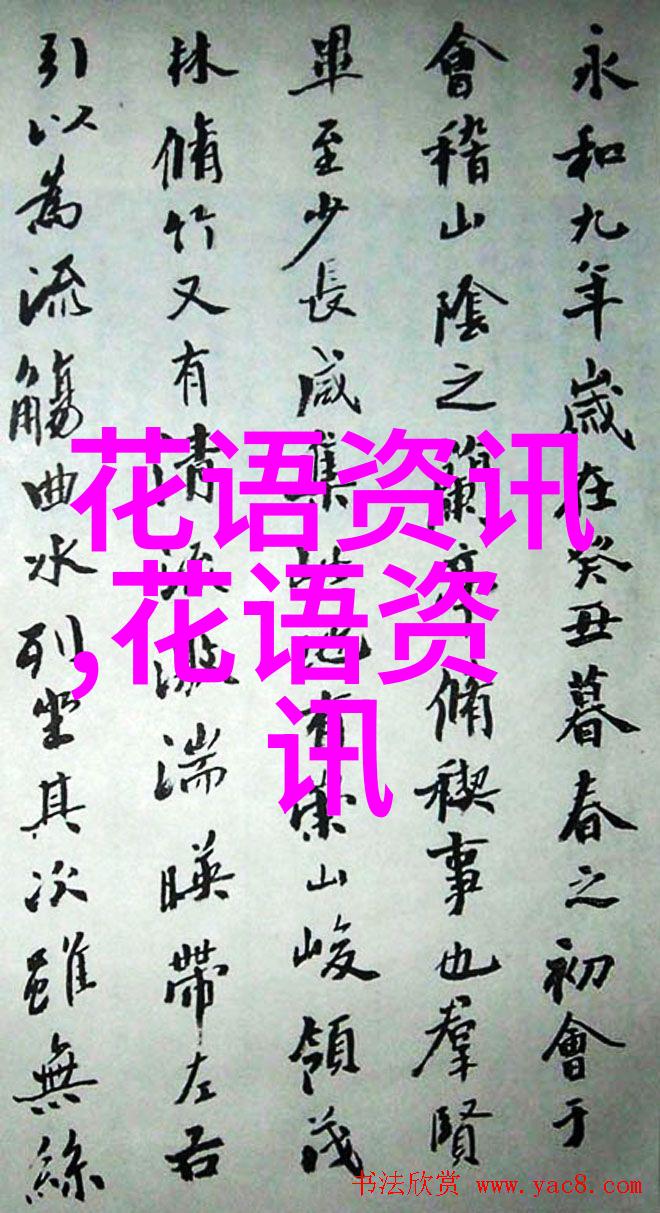 永和九年歲在癸丑暮春之初會于
會稽山陰之蘭亭脩稧事也羣賢
畢至少長咸集此地有崇山峻領茂
林脩竹又有清流激湍暎帶左右
引以為流觴曲水列坐其次雖無絲
花语资讯
,花语资
讯
书法欣赏 www.yac8.com